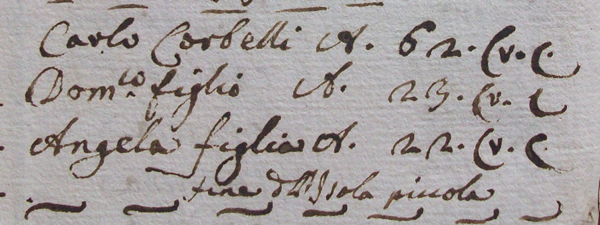 Carlo Corbelli A. 62. Cr. C.
Dom.co figlio A. 23. Cr. C
Angela figlia A. 22. Cr. C.
fine dll'Isola piccola